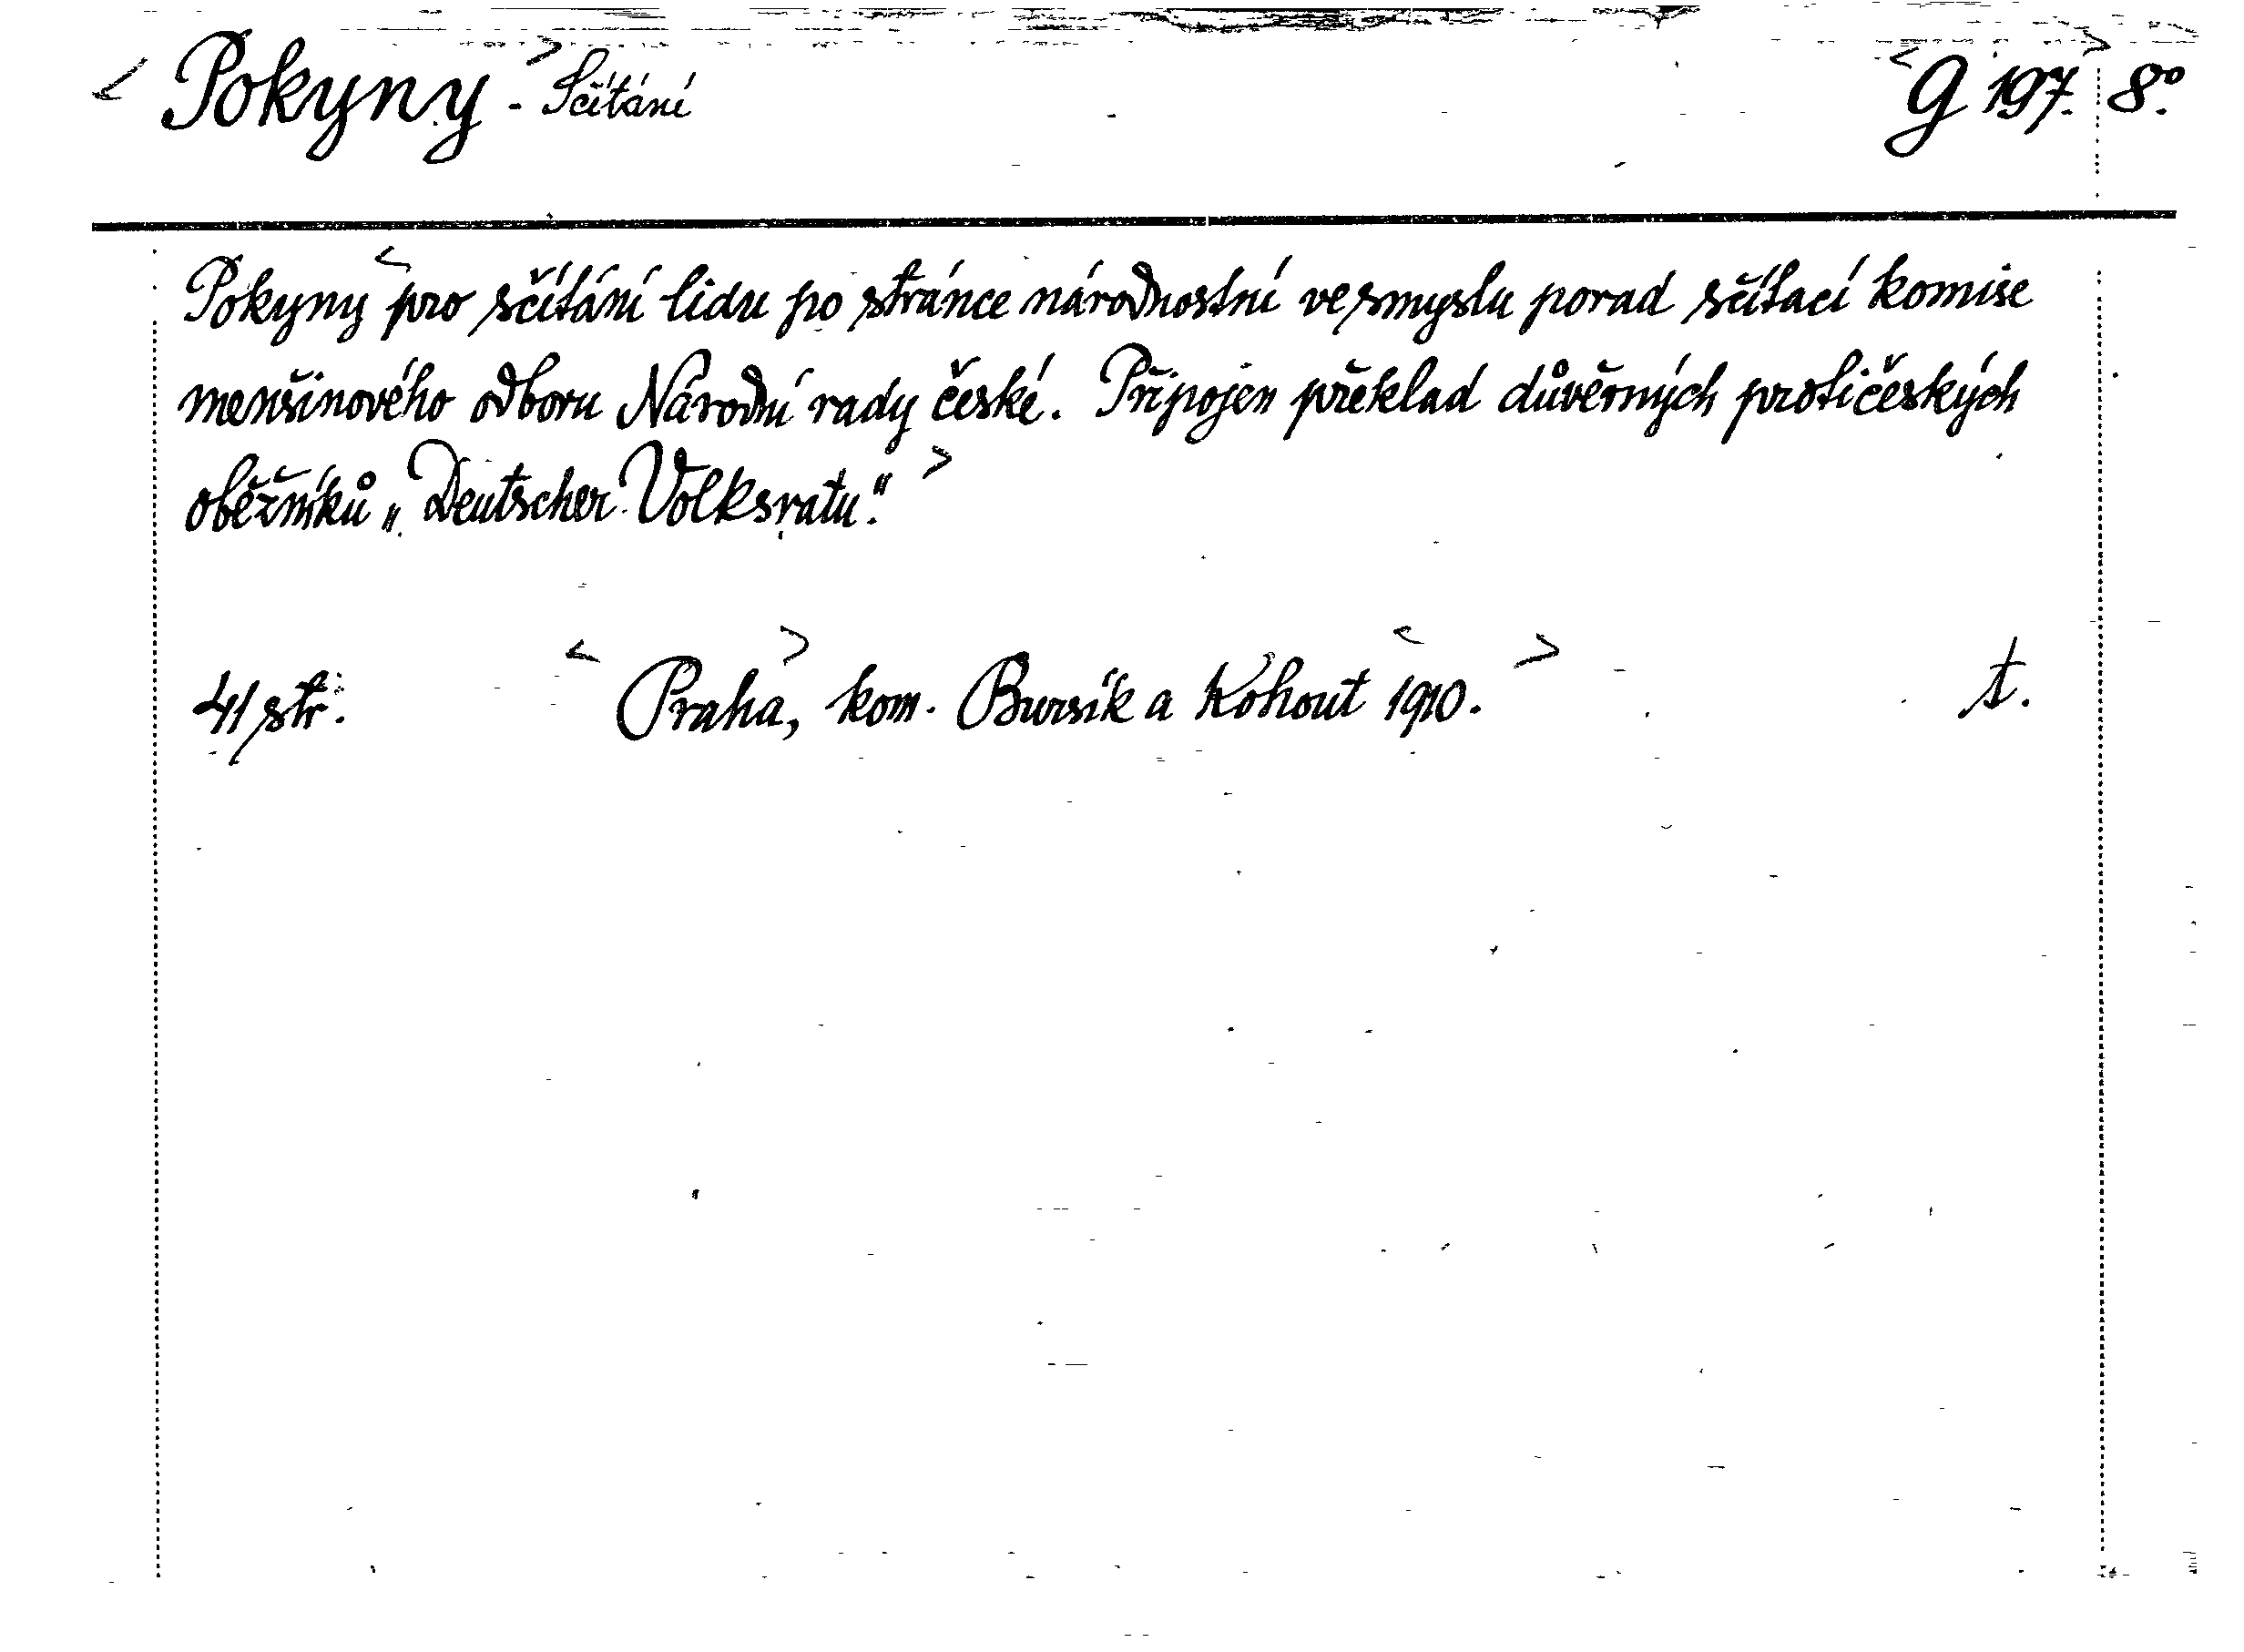 Pokyny - Sčítání G 197. 8°.
Pokyny pro sčítání lidu po stránce národnostní ve smyslu porad sčítací komise
menšinového odboru Národní rady české. Připojen překlad důvěrných protičeských
oběžníků „Deutscher Volksratu“.
41 str. Praha, kom. Bursík a Kohout 1910. t.